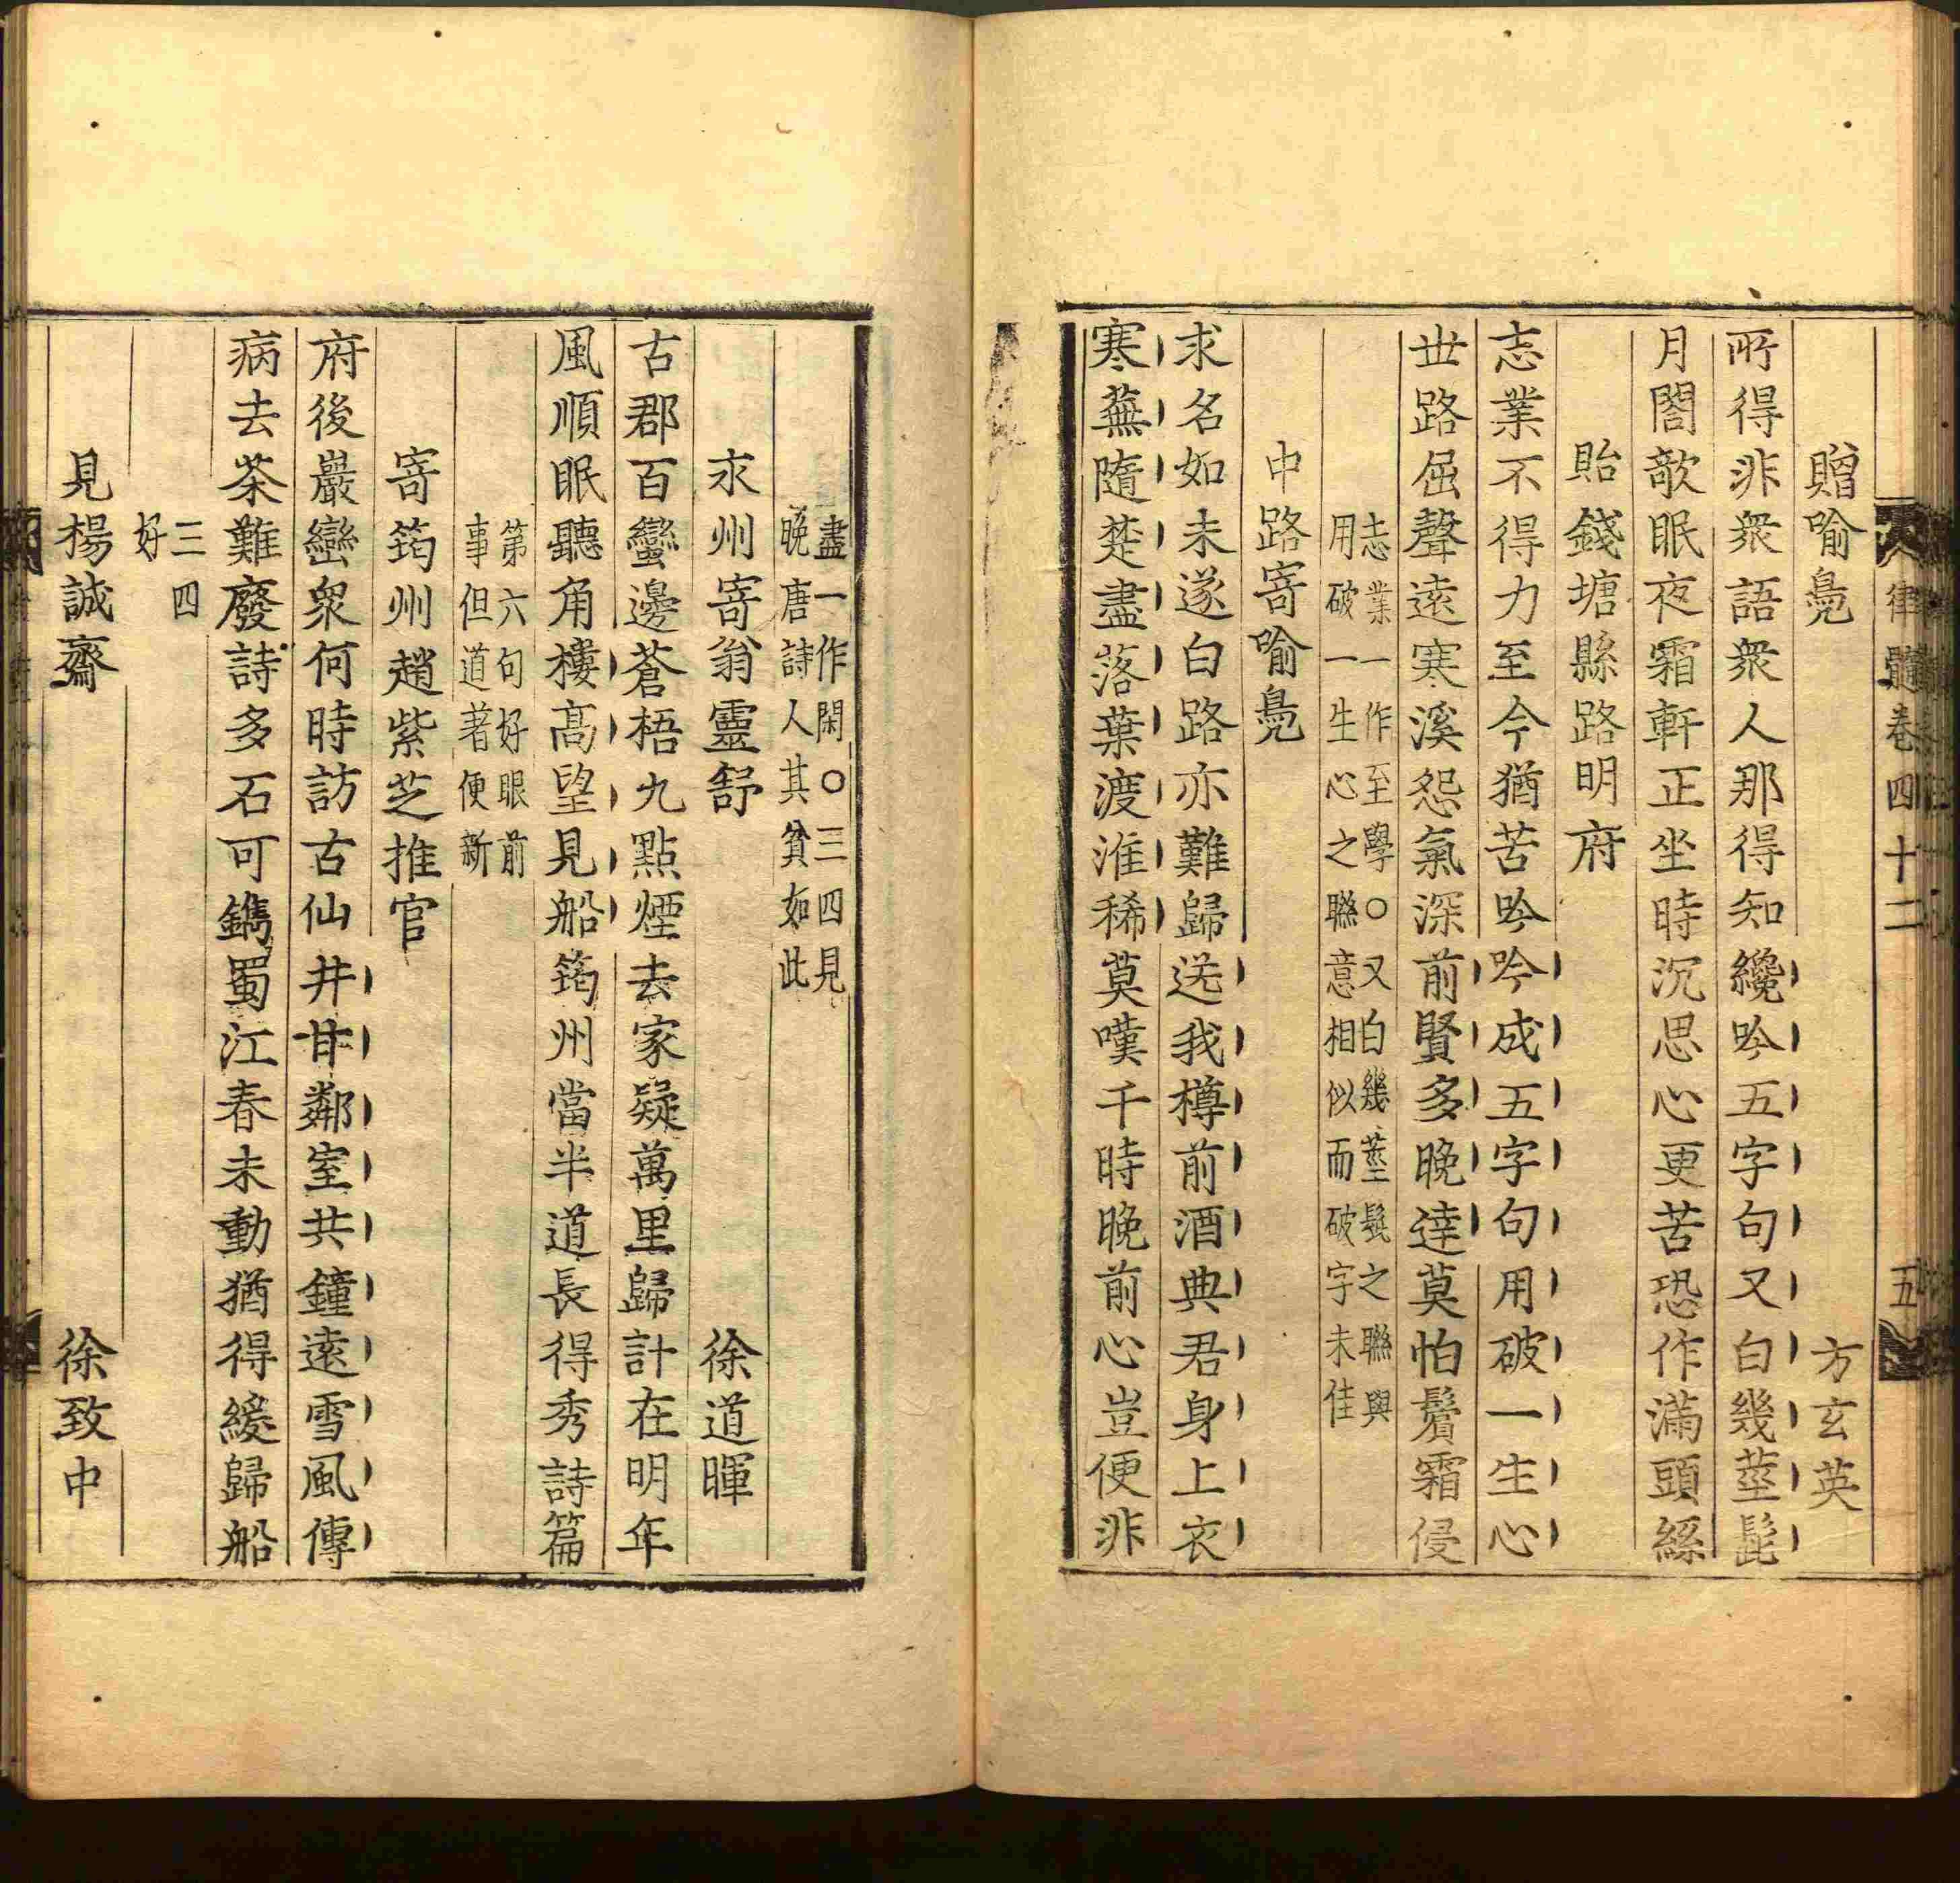 律髓卷四十二 五
贈喻鳧 方玄英
所得非衆語衆人那得知纔吟五字句又白幾莖髭
月閣欹眠夜霜軒正坐時沉思心更苦恐作滿頭絲
貽錢塘縣路明府
志業不得力至今猶苦吟吟成五字句用破一生心
世路屈聲遠寒溪怨氣深前賢多晚達莫怕鬢霜侵
志業一作至學○又白幾莖髭之聯與
用破一生心之聯意相似而破字未佳
中路寄喻鳧
求名如未遂白路亦難歸送我樽前酒典君身上衣
寒蕪隨楚盡落葉渡淮稀莫嘆千時晚前心豈便非
盡一作閑○三四見
晚唐詩人其貧如此
永州寄翁靈舒 徐道暉
古郡百蠻邊蒼梧九點煙去家疑萬里歸計在明年
風順眠聽角樓高望見船筠州當半道長得秀詩篇
第六句好眼前
事但道著便新
寄筠州趙紫芝推官
府後巖巒衆何時訪古仙井甘鄰室共鐘遠雪風傳
病去茶難廢詩多石可鐫蜀江春未動猶得緩歸船
三四
好
見楊誠齋 徐致中